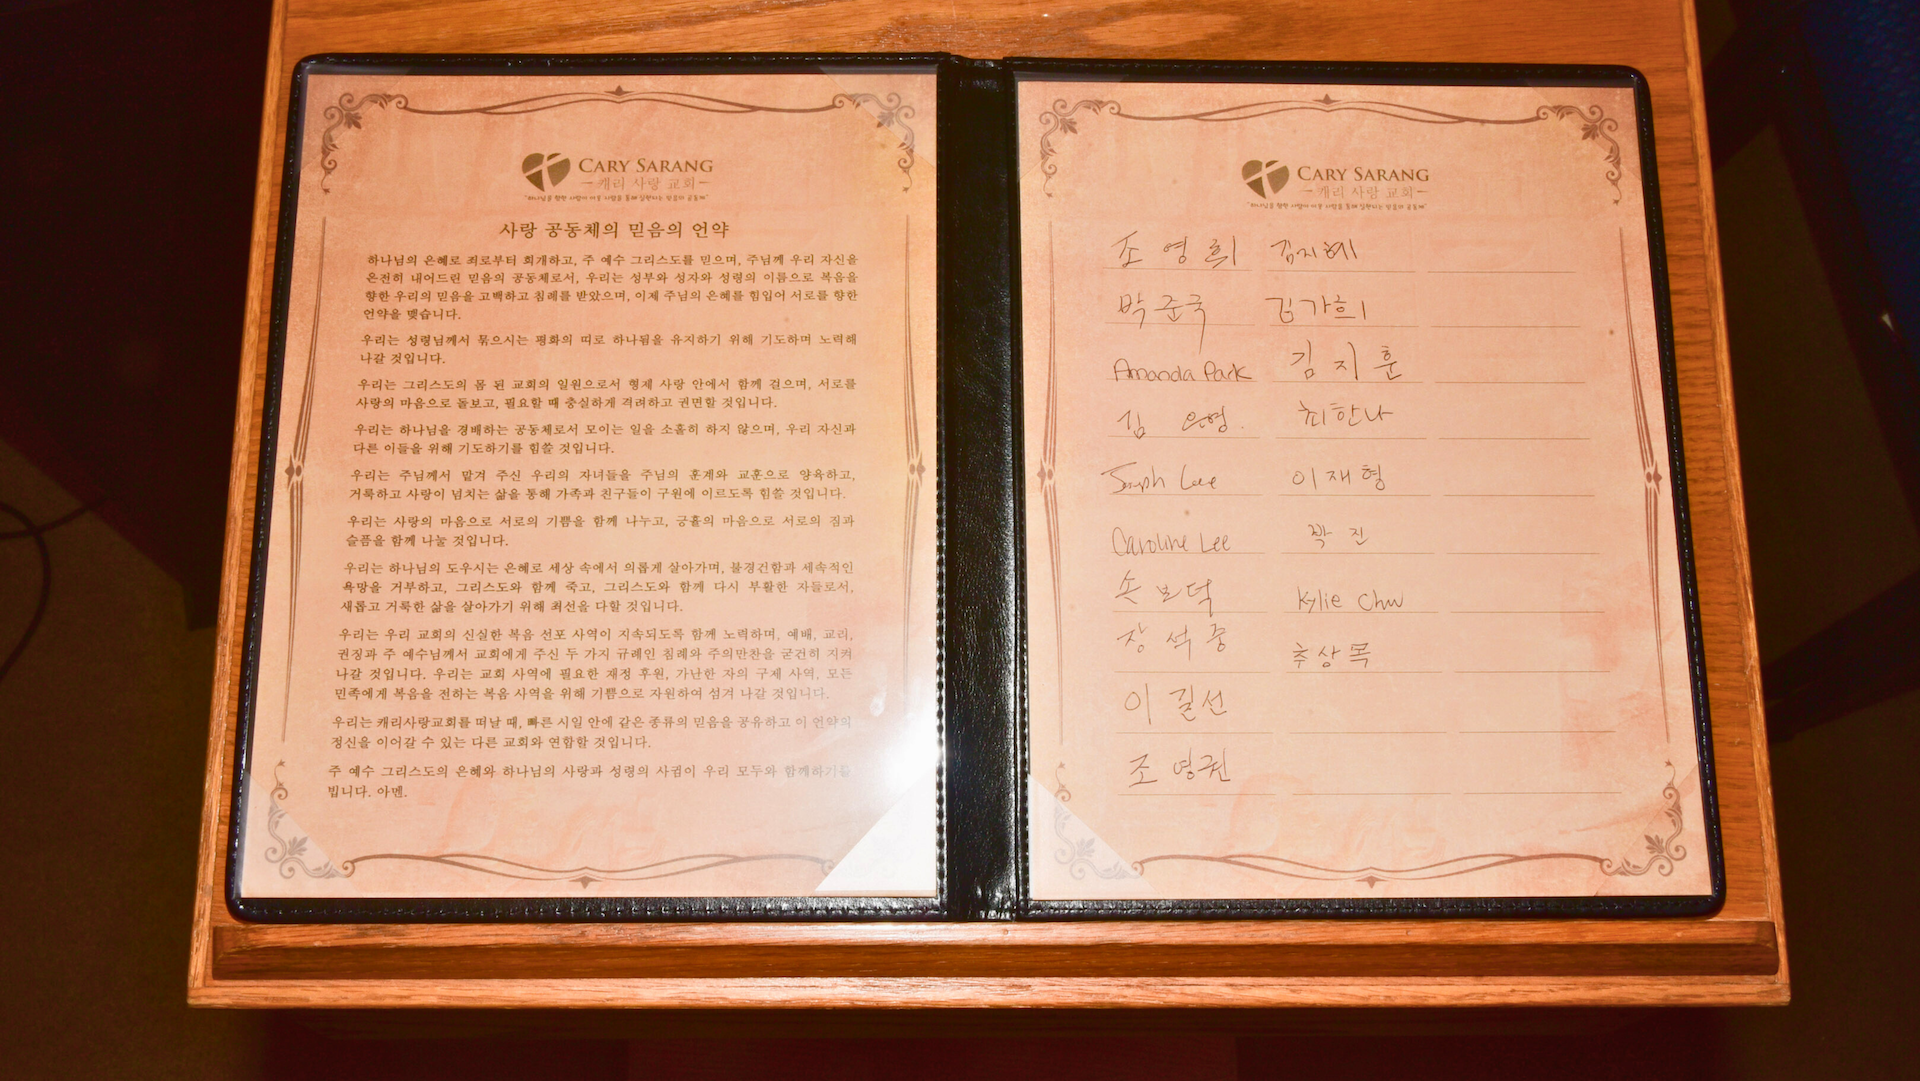 CARY SARANG
캐리 사랑 교회
"하나님을 향한 사랑이 이웃 사랑을 통해 실현되는 믿음의 공동체"
사랑 공동체의 믿음의 언약
하나님의 은혜로 죄로부터 회개하고, 주 예수 그리스도를 믿으며, 주님께 우리 자신을
온전히 내어드린 믿음의 공동체로서, 우리는 성부와 성자와 성령의 이름으로 복음을
향한 우리의 믿음을 고백하고 침례를 받았으며, 이제 주님의 은혜를 힘입어 서로를 향한
언약을 맺습니다.
우리는 성령님께서 묶으시는 평화의 띠로 하나됨을 유지하기 위해 기도하며 노력해
나갈 것입니다.
우리는 그리스도의 몸 된 교회의 일원으로서 형제 사랑 안에서 함께 걸으며, 서로를
사랑의 마음으로 돌보고, 필요할 때 충실하게 격려하고 권면할 것입니다.
우리는 하나님을 경배하는 공동체로서 모이는 일을 소홀히 하지 않으며, 우리 자신과
다른 이들을 위해 기도하기를 힘쓸 것입니다.
우리는 주님께서 맡겨 주신 우리의 자녀들을 주님의 훈계와 교훈으로 양육하고,
거룩하고 사랑이 넘치는 삶을 통해 가족과 친구들이 구원에 이르도록 힘쓸 것입니다.
우리는 사랑의 마음으로 서로의 기쁨을 함께 나누고, 긍휼의 마음으로 서로의 짐과
슬픔을 함께 나눌 것입니다.
우리는 하나님의 도우시는 은혜로 세상 속에서 의롭게 살아가며, 불경건함과 세속적인
욕망을 거부하고, 그리스도와 함께 죽고, 그리스도와 함께 다시 부활한 자들로서,
새롭고 거룩한 삶을 살아가기 위해 최선을 다할 것입니다.
우리는 우리 교회의 신실한 복음 선포 사역이 지속되도록 함께 노력하며, 예배, 교리,
권징과 주 예수님께서 교회에게 주신 두 가지 규례인 침례와 주의만찬을 굳건히 지켜
나갈 것입니다. 우리는 교회 사역에 필요한 재정 후원, 가난한 자의 구제 사역, 모든
민족에게 복음을 전하는 복음 사역을 위해 기쁨으로 자원하여 섬겨 나갈 것입니다.
우리는 캐리사랑교회를 떠날 때, 빠른 시일 안에 같은 종류의 믿음을 공유하고 이 언약의
정신을 이어갈 수 있는 다른 교회와 연합할 것입니다.
주 예수 그리스도의 은혜와 하나님의 사랑과 성령의 사귐이 우리 모두와 함께하기를
빕니다. 아멘.
CARY SARANG
캐리 사랑 교회
"하나님을 향한 사랑이 이웃 사랑을 통해 실현되는 믿음의 공동체"
조영희 김지혜
박준국 김가희
Amanda Park 김지훈
김은영. 최한나
Joseph Lee 이재형
Caroline Lee 박진
손보덕 Kylie Chu
장석중 추상목
이길선
조영권